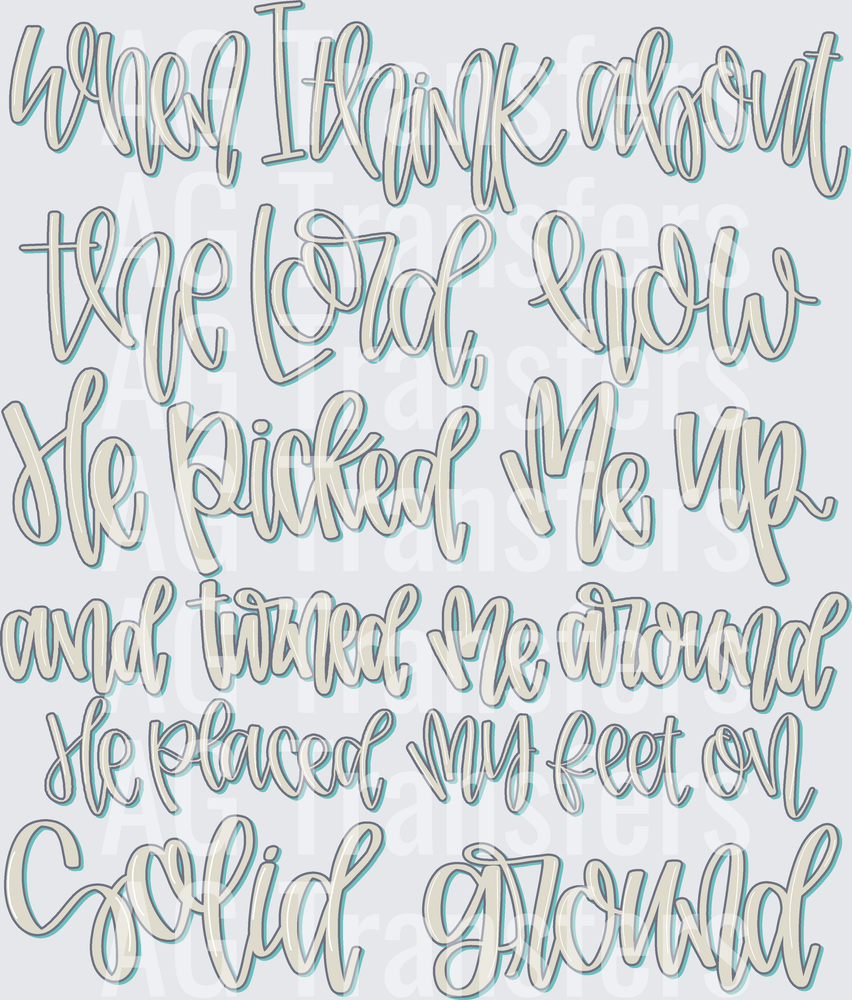 when I think about
the Lord, how
He picked me up
and turned me around
He placed my feet on
Solid ground
AG Transfers
AG Transfers
AG Transfers
AG Transfers
AG Transfers
AG Transfers
AG Transfers